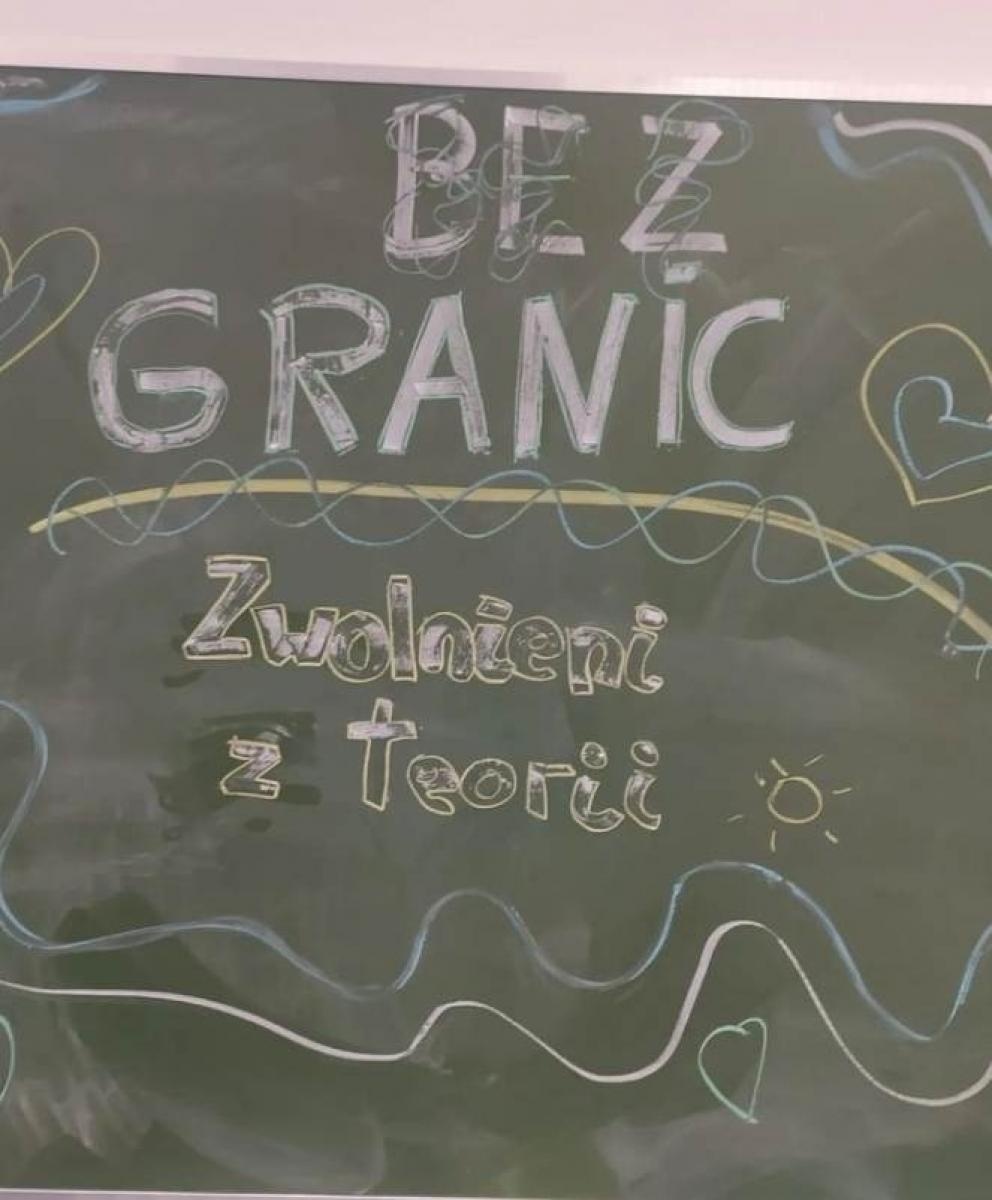 BEZ
GRANIC
Zwolnieni
z teorii